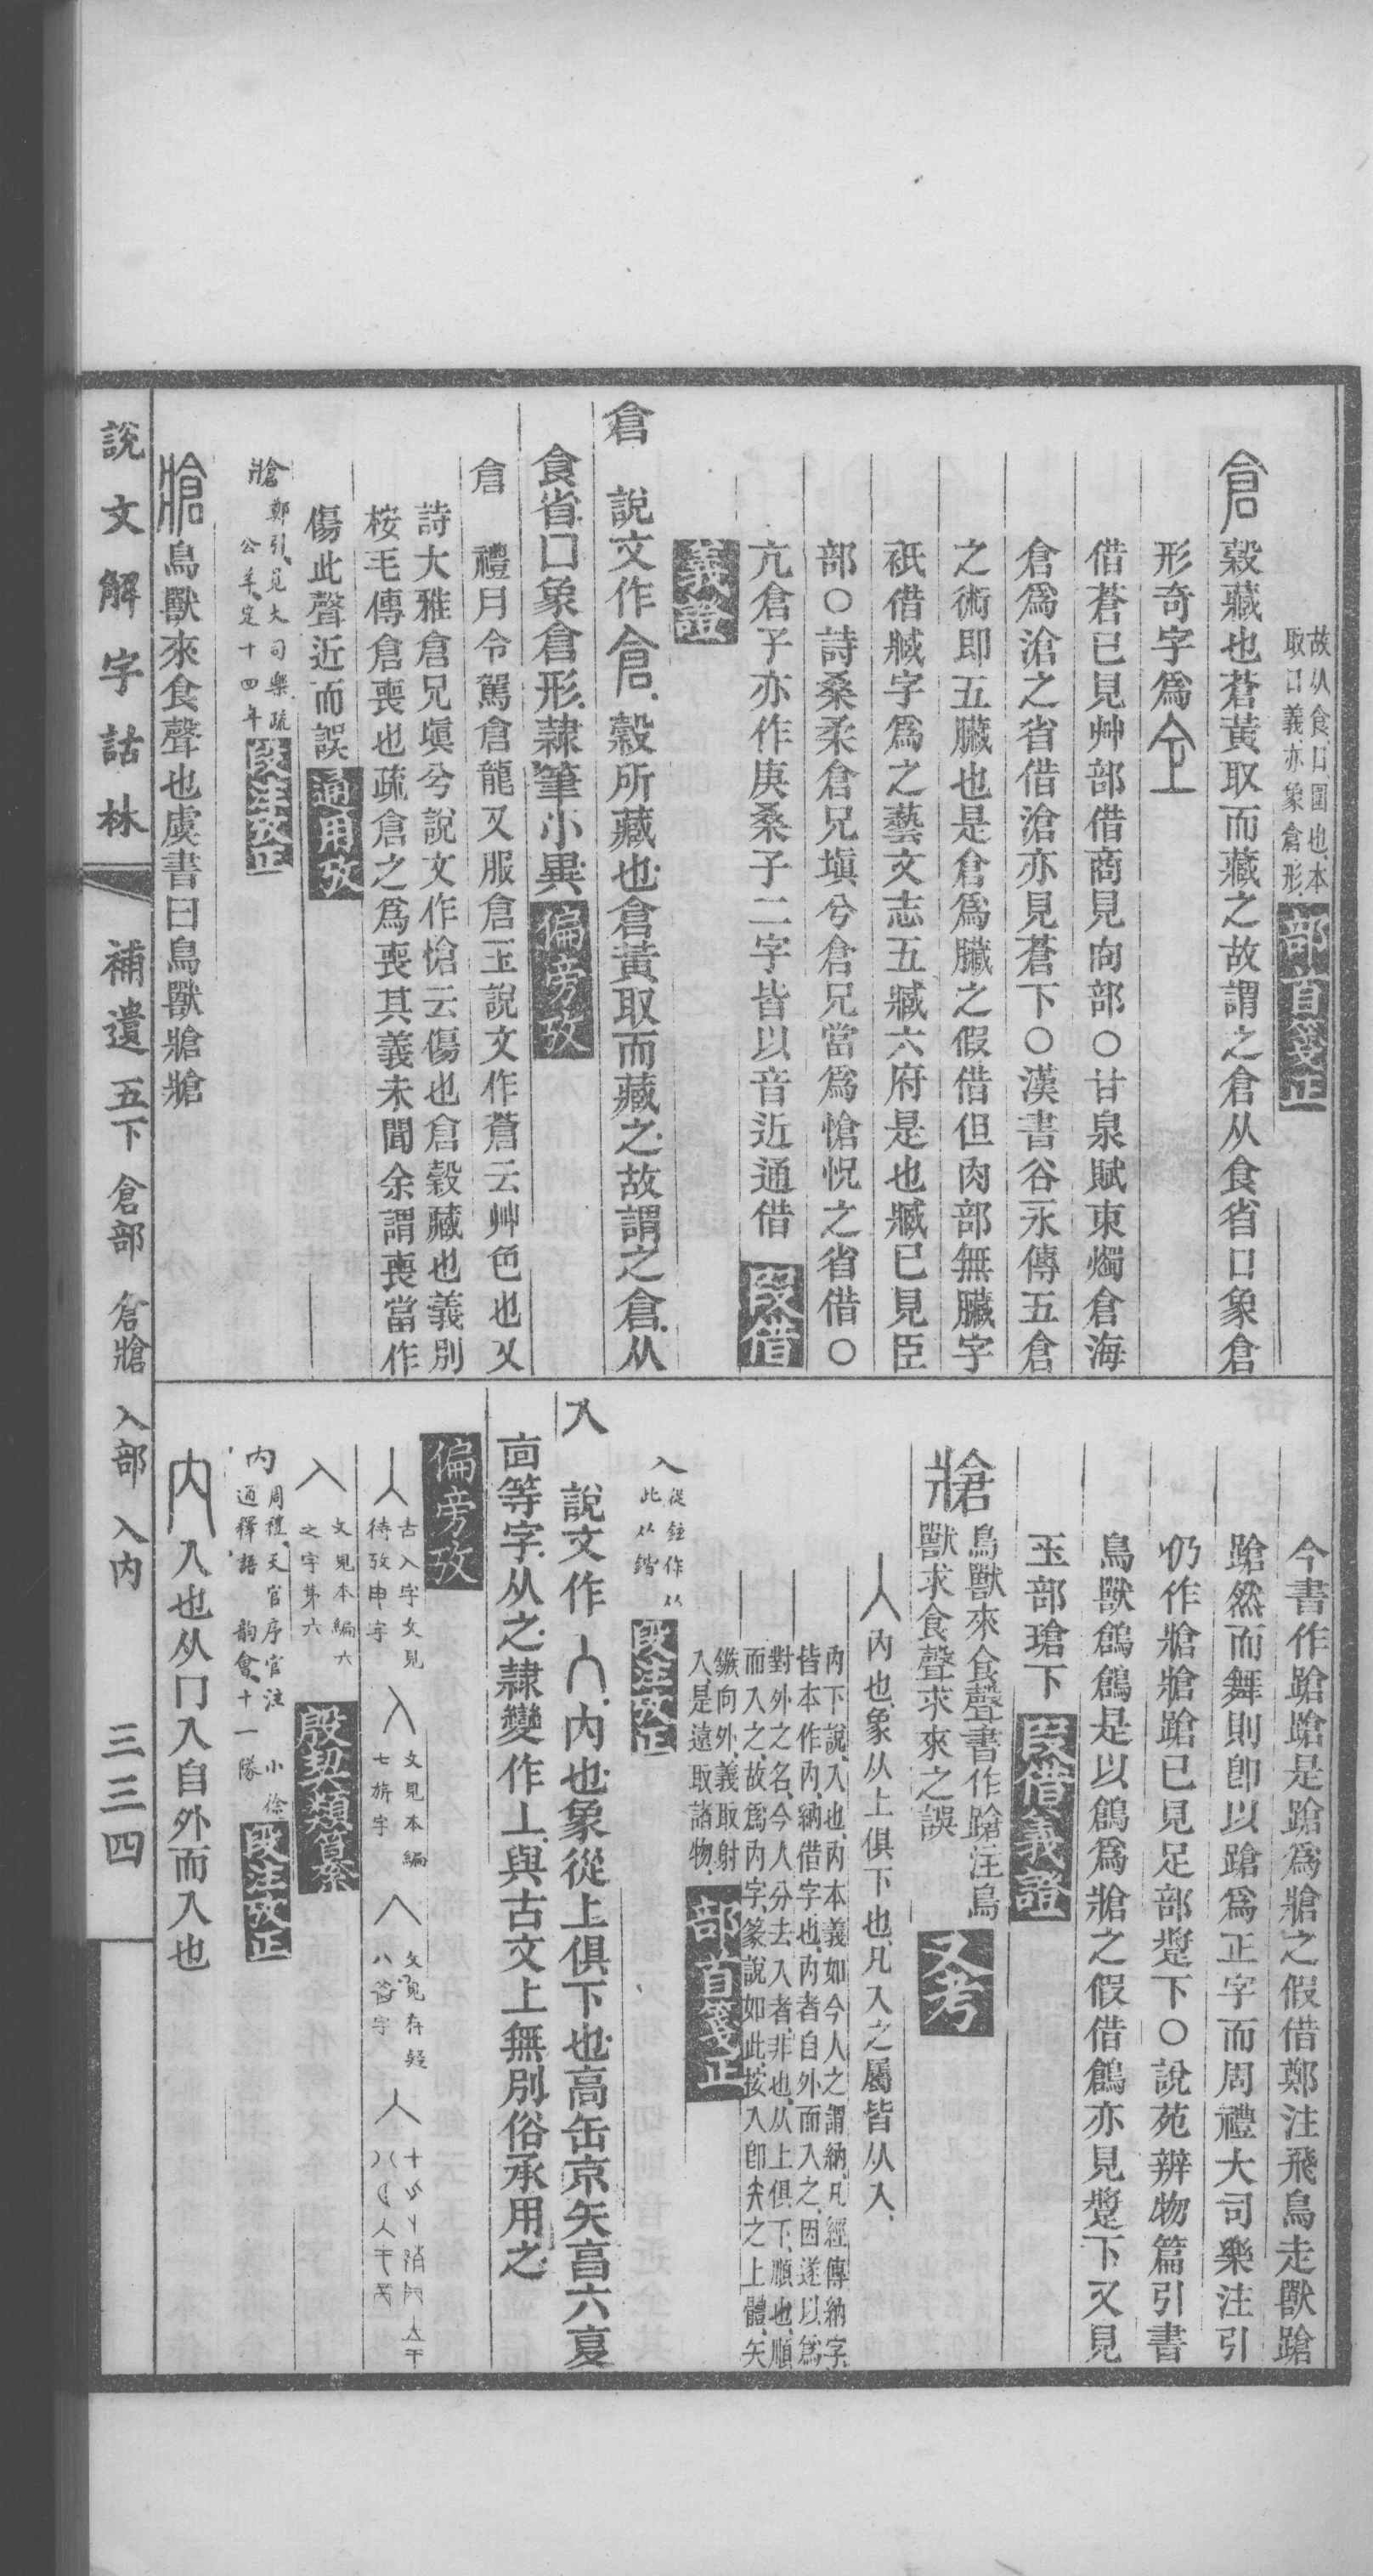 故从食口圍也本
取口義亦象倉形 部首箋正
倉 穀藏也蒼黃取而藏之故謂之倉从食省口象倉
形奇字爲仺
借蒼已見艸部借商見㕯部○甘泉賦東燭倉海
倉爲滄之省借滄亦見蒼下○漢書谷永傳五倉
之術即五臟也是倉爲臟之假借但肉部無臟字
祇借臧字爲之藝文志五臧六府是也臧已見臣
部○詩桑柔倉兄塡兮倉兄當爲愴怳之省借○
亢倉子亦作庚桑子二字皆以音近通借 段借
義證
倉 說文作倉穀所藏也倉黃取而藏之故謂之倉从
食省口象倉形隷筆小異 偏旁攷
倉 禮月令駕倉龍又服倉玉說文作蒼云艸色也又
詩大雅倉兄塡兮說文作愴云傷也倉穀藏也義別
桉毛傳倉喪也疏倉之爲喪其義未聞余謂喪當作
傷此聲近而誤 通用攷
牄 鄭引見大司樂疏
公羊定十四年 段注攷正
牄 鳥獸來食聲也虞書曰鳥獸牄牄
今書作蹌蹌是蹌爲牄之假借鄭注飛鳥走獸蹌
蹌然而舞則卽以蹌爲正字而周禮大司樂注引
仍作牄牄蹌已見足部䠞下○說苑辨物篇引書
鳥獸鶬鶬是以鶬爲牄之假借鶬亦見䠞下又見
玉部瑲下 段借義證
牄 鳥獸來食聲書作蹌注鳥
獸求食聲求來之誤 又考
入 內也象从上俱下也凡入之屬皆从入
內下說入也內本義如今人之謂納凡經傳納字
皆本作內納借字也內者自外而入之因遂以爲
對外之名今人分去入者非也从上俱下順也順
而入之故爲內字篆說如此按入卽矢之上體矢
鏃向外義取射
入是遠取諸物 部首箋正
入 從鍾作以
此以鍇 段注攷正
入 說文作入內也象從上俱下也高缶京矢㐭六亶
靣等字从之隷變作丄與古文上無別俗承用之
偏旁攷
人 古入字文見
待攷申字 入 文見本編
七旂字 入 文見存疑
八 人
入 文見本編六
之字第六 殷契類篹
內 周禮天官序官注 小徐
通釋語 韵會十一隊 段注攷正
內 入也从冂入自外而入也
說文解字詁林 補遺 五下 倉部 倉牄 入部 入內 三三四